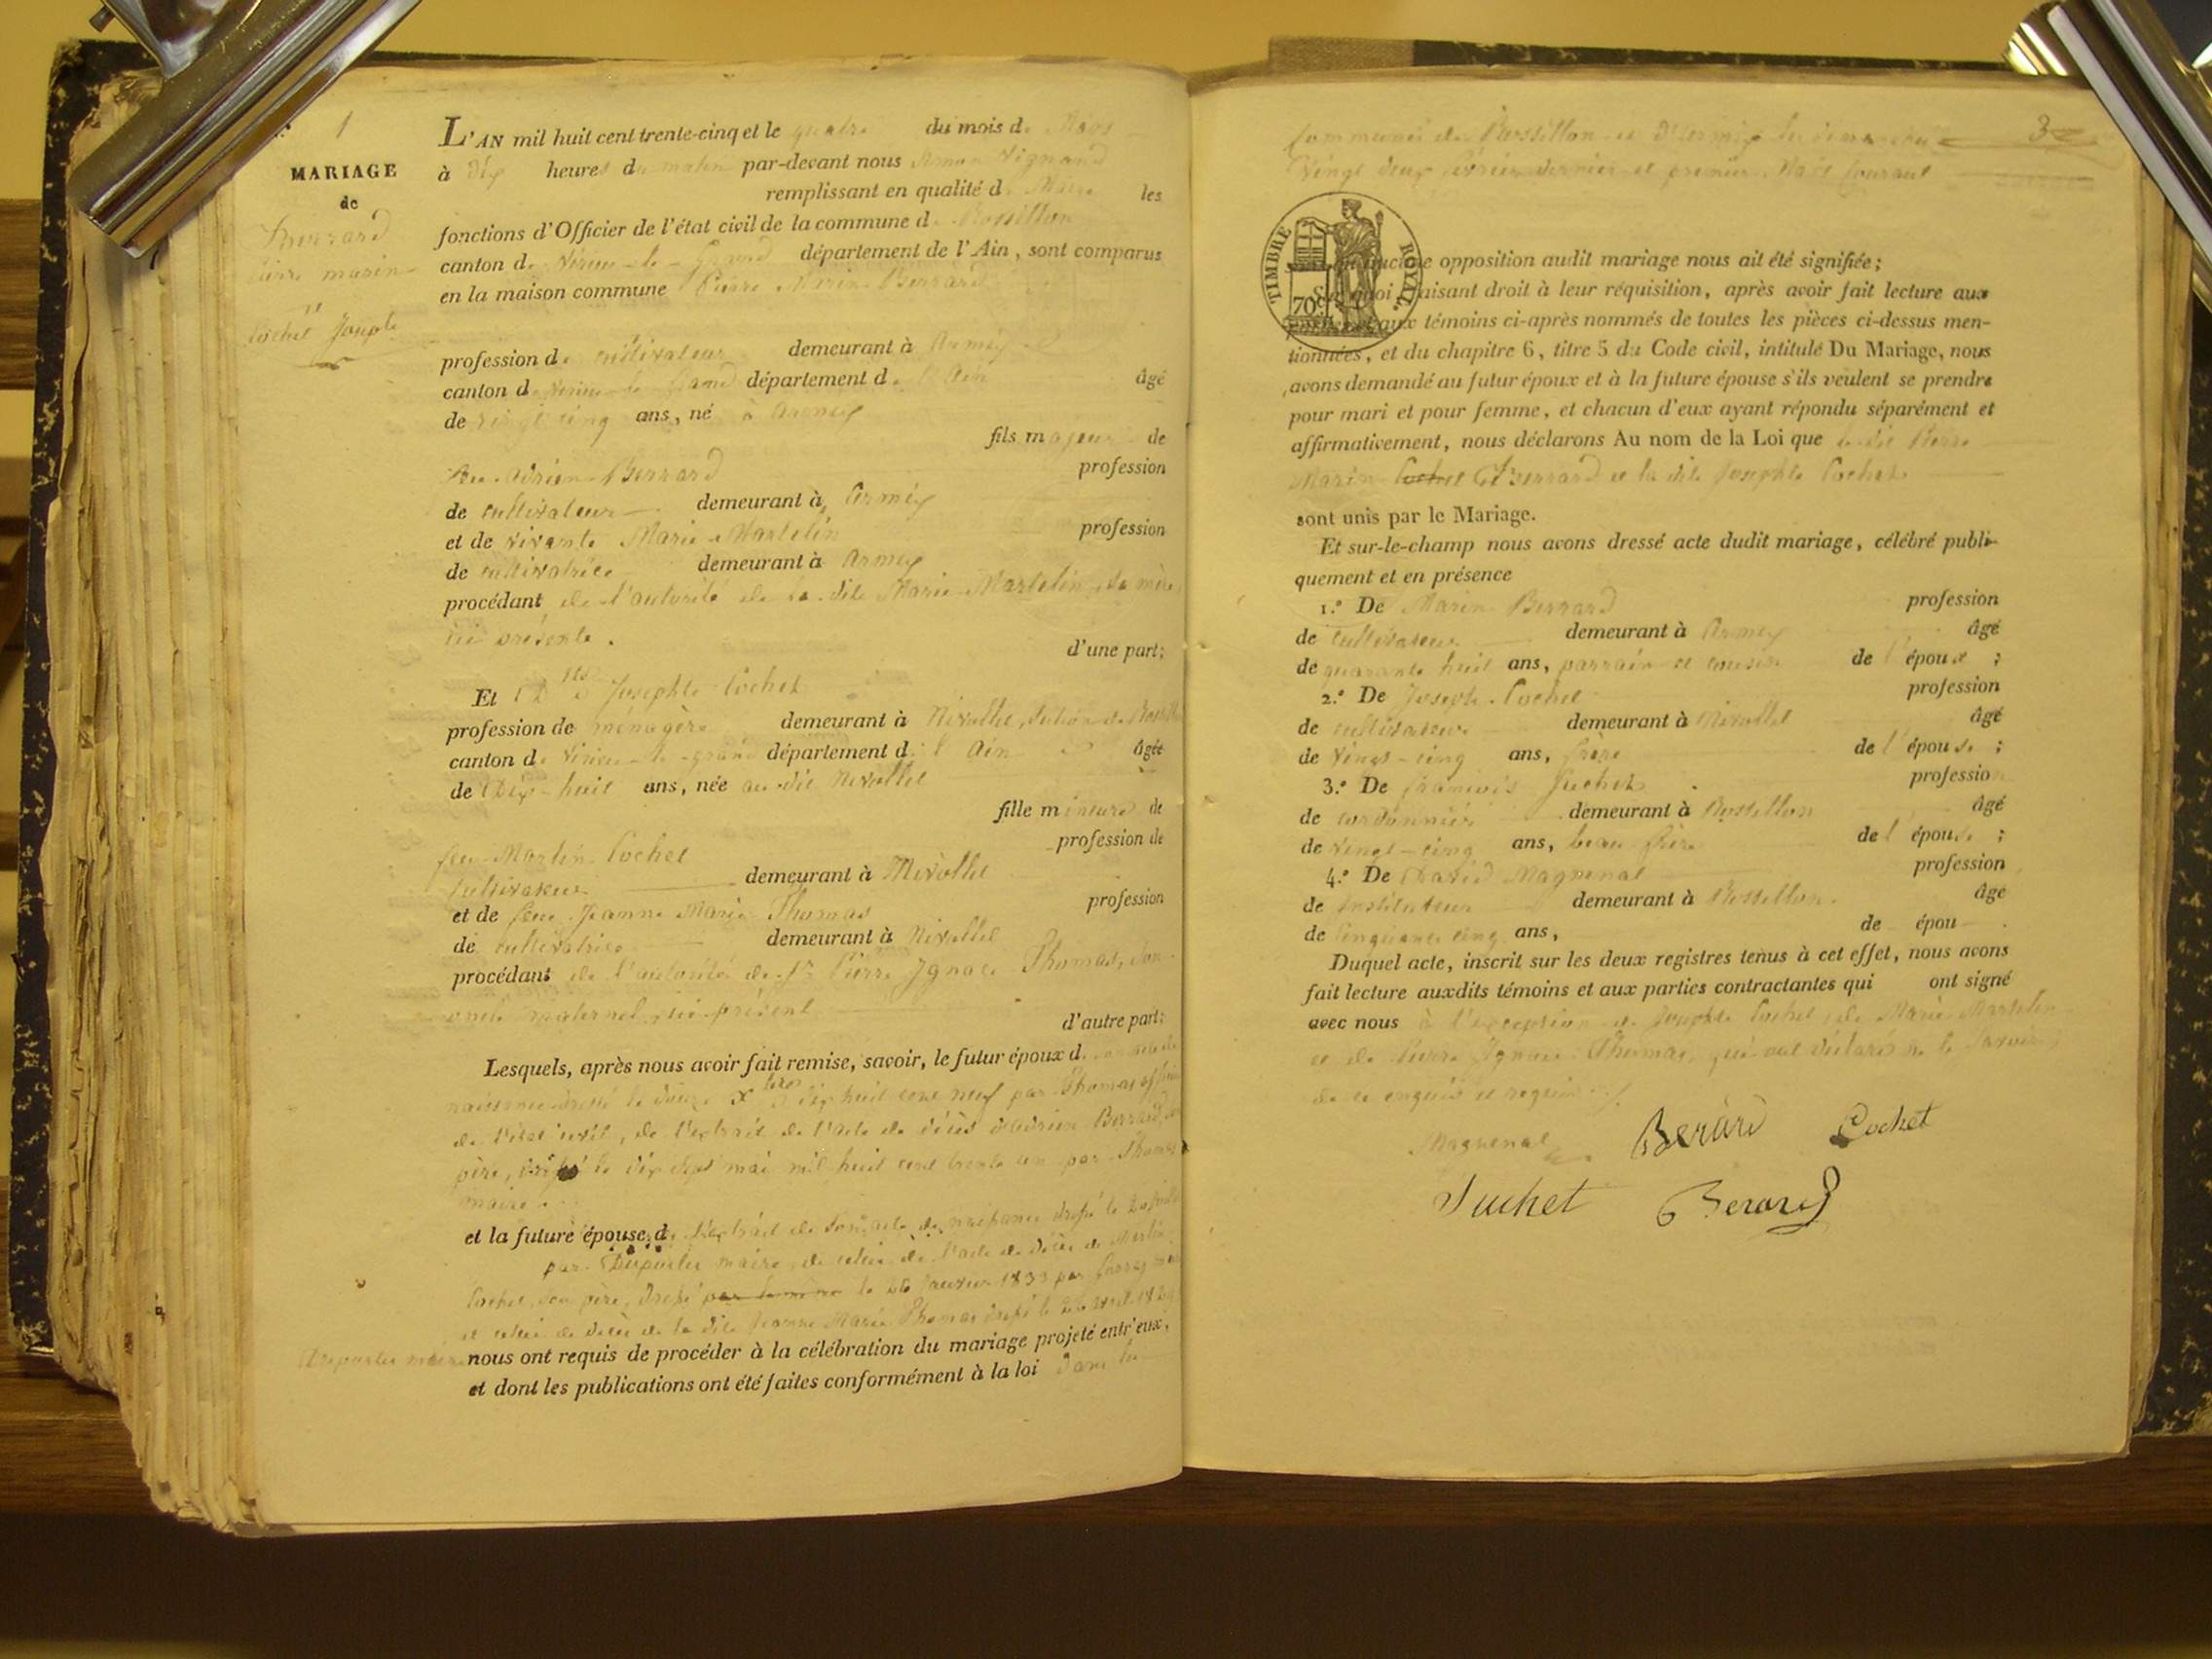 1
MARIAGE
de
Berrard
pierre marin
et
Cochet Josephte
L'AN mil huit cent trente-cinq et le quatre du mois de Mars
à dix heures du matin par-devant nous Vignand
remplissant en qualité de Maire les
fonctions d'Officier de l'état civil de la commune de Rossillon
canton de Virieu-le-Grand département de l'Ain, sont comparus
en la maison commune Pierre Marin Berrard
profession de cultivateur demeurant à Armeix
canton de Virieu-le-Grand département de l'Ain âgé
de vingt cinq ans, né à Armeix
fils majeur de
feu Adrien Berrard profession
de cultivateur demeurant à Armeix
et de vivante Marie Martelin profession
de cultivatrice demeurant à Armeix
procédant de l'autorité de la dite Marie Martelin sa mère
ici présente.
d'une part;
Et Josephte Cochet
profession de ménagère demeurant à Nivollet, de
canton de Virieu-le-grand département de l'Ain âgée
de Dix-huit ans, née au dit Nivollet
fille mineure de
feu Martin Cochet profession de
cultivateur demeurant à Nivollet
et de feue Jeanne Marie Thomas profession
de cultivatrice demeurant à Nivollet
procédant de l'autorité de Sr Pierre Ignace Thomas, son
oncle maternel, ici présent
d'autre part;
Lesquels, après nous avoir fait remise, savoir, le futur époux d
naissance dressé le douze Xbre dix huit cent neuf par Thomas officier
de l'état civil, de l'extrait de l'acte de décès d'Adrien Berrard, son
père, dressé le dix sept mai mil huit cent trente un par Thomas
maire.
et la future épouse, de l'extrait de son acte de naissance dressé le
par Dupuilet maire, de celui de l'acte de décès de Martin
Cochet, son père, dressé par le même le 26 Janvier 1833 par
et celui de décès de la dite Jeanne Marie Thomas dressé le 26 avril
maire nous ont requis de procéder à la célébration du mariage projeté entr'eux,
et dont les publications ont été faites conformément à la loi dans les
3
communes de Rossillon et d'Armeix les dimanches
Vingt deux février dernier et premier Mars courant
TIMBRE ROYAL.
70
aucune opposition audit mariage nous ait été signifiée;
faisant droit à leur réquisition, après avoir fait lecture aux
aux témoins ci-après nommés de toutes les pièces ci-dessus men-
tionnées, et du chapitre 6, titre 5 du Code civil, intitulé Du Mariage, nous
avons demandé au futur époux et à la future épouse s'ils veulent se prendre
pour mari et pour femme, et chacun d'eux ayant répondu séparément et
affirmativement, nous déclarons Au nom de la Loi que le dit Pierre
Marin Cochet Berrard et la dite Josephte Cochet
sont unis par le Mariage.
Et sur-le-champ nous avons dressé acte dudit mariage, célébré publi-
quement et en présence
1.º De Marin Berrard profession
de cultivateur demeurant à Armeix âgé
de quarante huit ans, parrain et cousin de l'époux;
2.º De Joseph Cochet profession
de cultivateur demeurant à Nivollet âgé
de Vingt-cinq ans, frère de l'épouse;
3.º De françois Juchet profession
de cordonnier demeurant à Rossillon âgé
de vingt-cinq ans, beau frère de l'épouse;
4.º De David Magnenal profession
de instituteur demeurant à Rossillon. âgé
de Cinquante cinq ans, de épou .
Duquel acte, inscrit sur les deux registres tenus à cet effet, nous avons
fait lecture auxdits témoins et aux parties contractantes qui ont signé
avec nous à l'exception de Josephte Cochet, de Marie Martelin
et de Pierre Ignace Thomas, qui ont déclaré ne le savoir,
de ce enquis et requis
Magnenal Berard Cochet
Juchet Berard